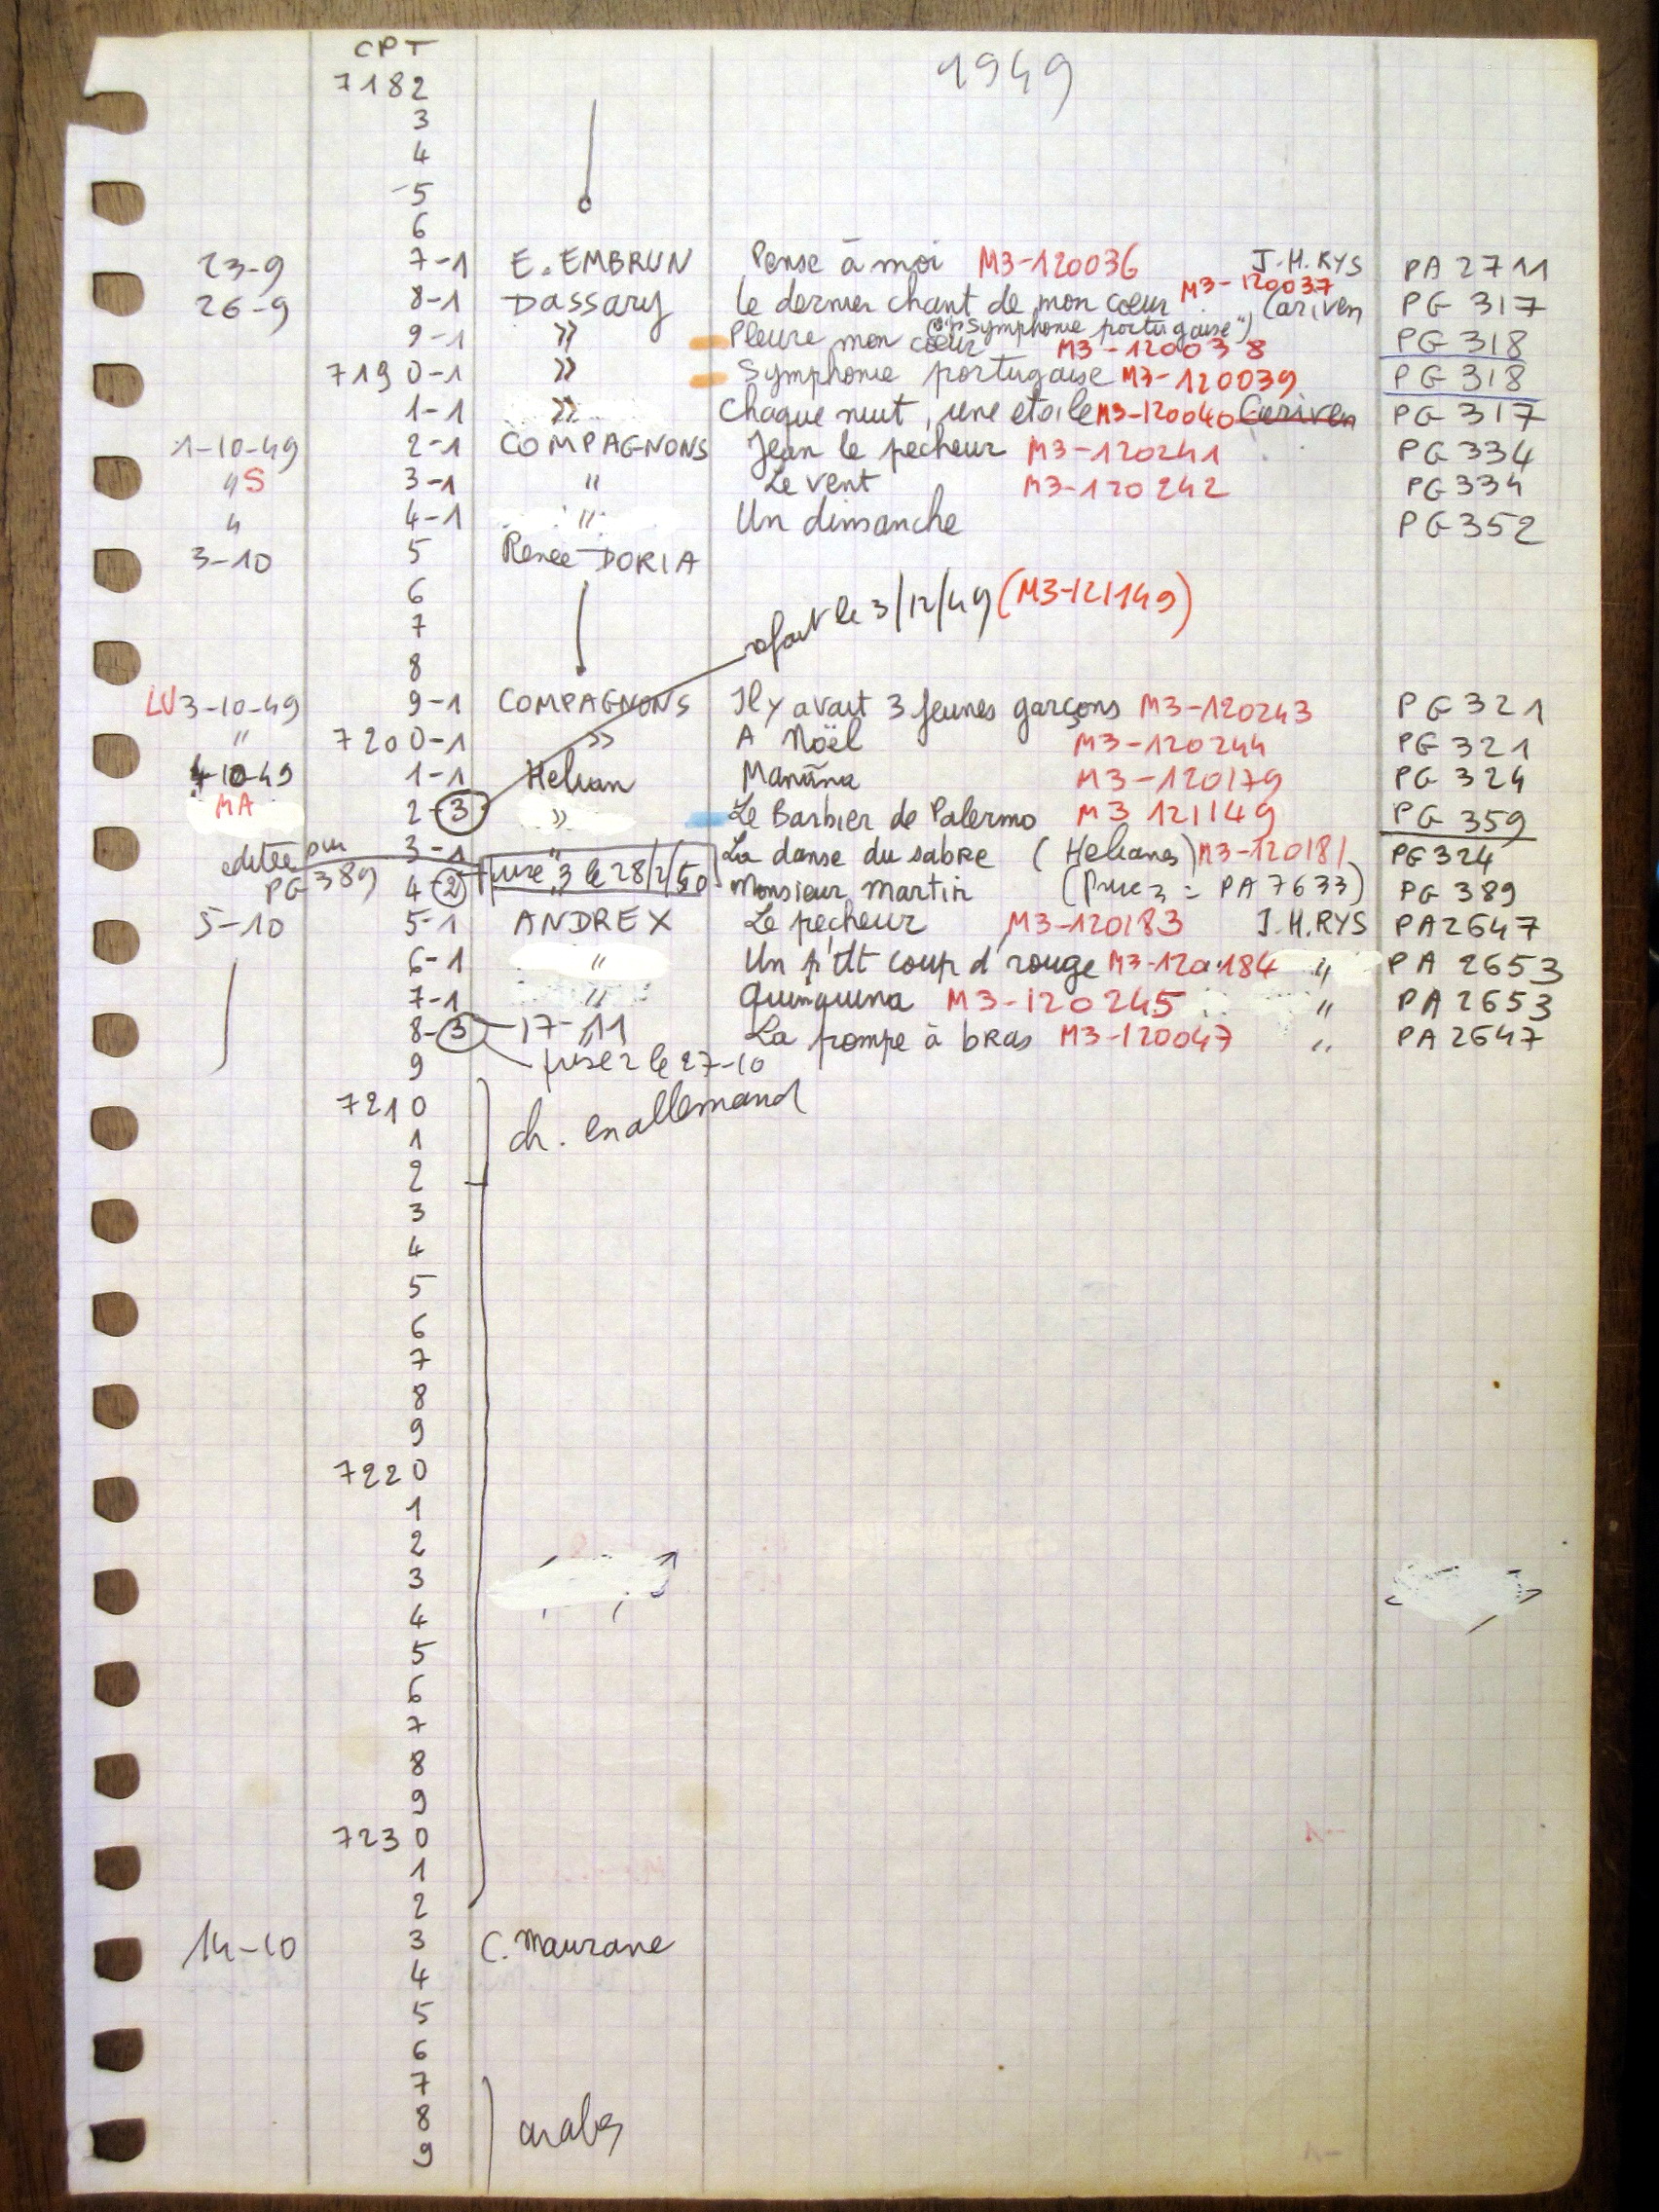 CPT 1949
7182
3
4
5
6
23-9 7-1 E. EMBRUN Pense à moi M3-120036 J.H.RYS PA 2711
26-9 8-1 Dassary le dernier chant de mon coeur M3-120037 Cariven PG 317
9-1 » Pleure mon coeur (op. "Symphonie portugaise") M3-120038 PG 318
7190-1 » Symphonie portugaise M3-120039 PG 318
1-1 » Chaque nuit, une etoile M3-120040 Cariven PG 317
1-10-49 2-1 COMPAGNONS Jean le pecheur M3-120241 PG 334
" S 3-1 " Le vent M3-120242 PG 334
" 4-1 " Un dimanche PG 352
3-10 5 Renée DORIA
6 refait le 3/12/49 (M3-121149)
7
8
LU 3-10-49 9-1 COMPAGNONS Il y avait 3 jeunes garçons M3-120243 PG 321
" 7200-1 » A Noël M3-120244 PG 321
4-10-49 1-1 Helian Manãna M3-120179 PG 324
MA 2-3 » Le Barbier de Palermo M3 121149 PG 359
3-1 " La danse du sabre (Helianes) M3-120181 PG 324
editée sur PG 389 4-2 prise 3 le 28/2/50 Monsieur Martin (prise 3 = PA 7633) PG 389
5-10 5-1 ANDREX Le pecheur M3-120183 J.H.RYS PA 2647
6-1 " Un p'tit coup d'rouge M3-120184 " PA 2653
7-1 " Quinquina M3-120245 " PA 2653
8-3 17-11 " La pompe à bras M3-120047 " PA 2647
9 prise 2 le 27-10
7210
1 ch. en allemand
2
3
4
5
6
7
8
9
7220
1
2
3
4
5
6
7
8
9
7230
1
2
14-10 3 C. Maurane
4
5
6
7
8 arabes
9